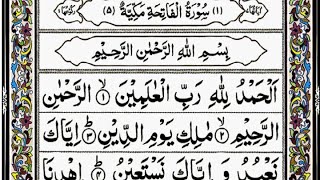 (١) سُوْرَةُ الْفَاتِحَةِ مَكِّيَّةٌ (٥)
بِسْمِ اللّٰهِ الرَّحْمٰنِ الرَّحِيْمِ
اَلْحَمْدُ لِلّٰهِ رَبِّ الْعٰلَمِيْنَ ۙ﴿۱﴾ الرَّحْمٰنِ
الرَّحِيْمِ ۙ﴿۲﴾ مٰلِكِ يَوْمِ الدِّيْنِ ؕ﴿۳﴾ اِيَّاكَ
نَعْبُدُ وَ اِيَّاكَ نَسْتَعِيْنُ ؕ﴿۴﴾ اِهْدِنَا